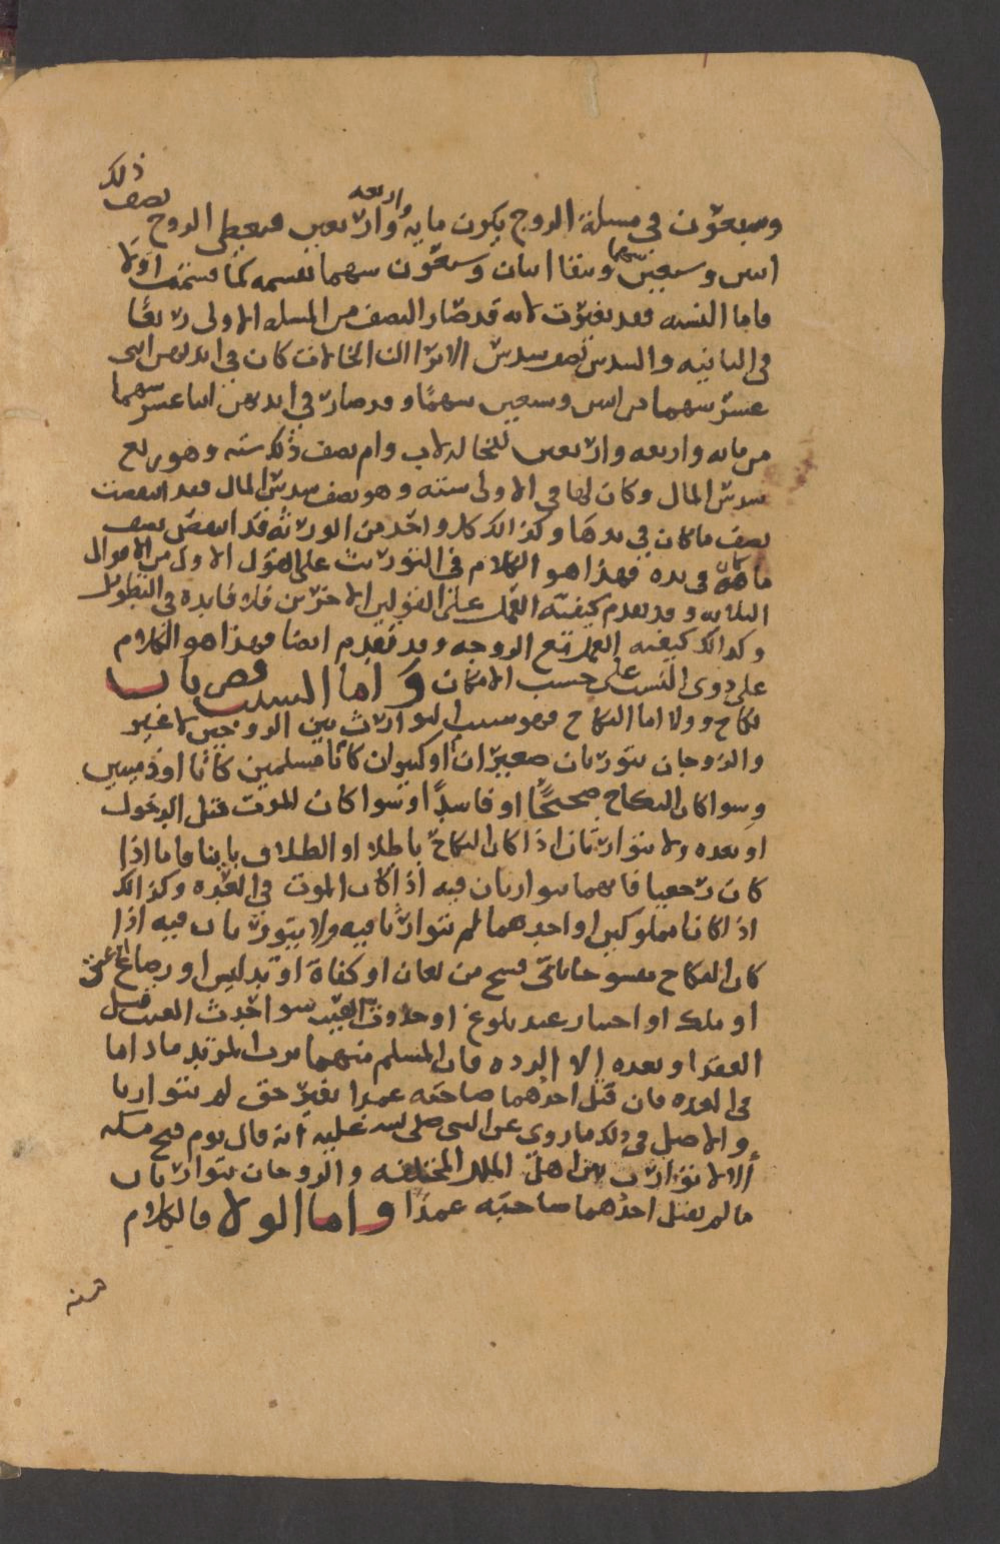 وسبعون في مسئلة الزوج يكون مايه واربعه واربعين فيعطى الزوج نصف ذلك
اثنين وسبعين سهما ويبقا اثنان وسبعون سهما تقسمه كما قسمت اولا
فاما النسبه فقد تغيرت لانه قد صار النصف من المسله الاولى ربعا
في الثانيه والسدس نصف سدس الا ترا ان الخالات كان في ايديهن اثنى
عشر سهما من اثنين وسبعين سهما وقد صار في ايديهن اثنا عشر سهما
من مايه واربعه واربعين للخاله لاب وام نصف ذلك سته وهو ربع
سدس المال وكان لها في الاولى سته وهو نصف سدس المال فقد انتقصت
نصف ما كان في يدها وكذالك كل واحد من الورثه قد انتقص نصف
ما كان في يده فهذا هو الكلام في التوريث على القول الاول من الاقوال
الثلاثه وقد تقدم كيفيه العمل على القولين الاخرين فلا فايده في التطويل
وكذالك كيفيه العمل مع الزوجه وقد تقدم ايضا فهذا هو الكلام
على ذوي النسب على حسب الامكان واما السبب فضربان
نكاح وولا اما النكاح فهو سبب التوارث بين الزوجين لا غير
والزوجان يتوارثان صغيران او كبيران كانا مسلمين كانا او ذميين
وسوا كان النكاح صحيحًا او فاسدًا وسوا كان الموت قبل الدخول
او بعده ولا يتوارثان اذا كان النكاح باطلا او الطلاق باينا فاما اذا
كان رجعيا فانهما يتوارثان فيه اذا كان الموت في العده وكذالك
اذا كانا مملوكين او احدهما لم يتوارثا فيه ولا يتوارثان فيه اذا
كان النكاح مفسوخا باى فسخ من لعان او كفاة او تدليس او رضاع
او ملك او اختيار عند بلوغ او حدوث العيب سوا حدث العيب قبل
العقد او بعده إلا الرده فان المسلم منهما يرث المرتد ماداما
في العده فان قتل احدهما صاحبه عمدا بغير حق لم يتوارثا
والاصل في ذلك ما روى عن النبى صلى الله عليه انه قال يوم فتح مكه
ألا لا توارث بين اهل الملل المختلفه والزوجان يتوارثان
ما لم يقتل احدهما صاحبه عمدًا واما الولا فالكلام